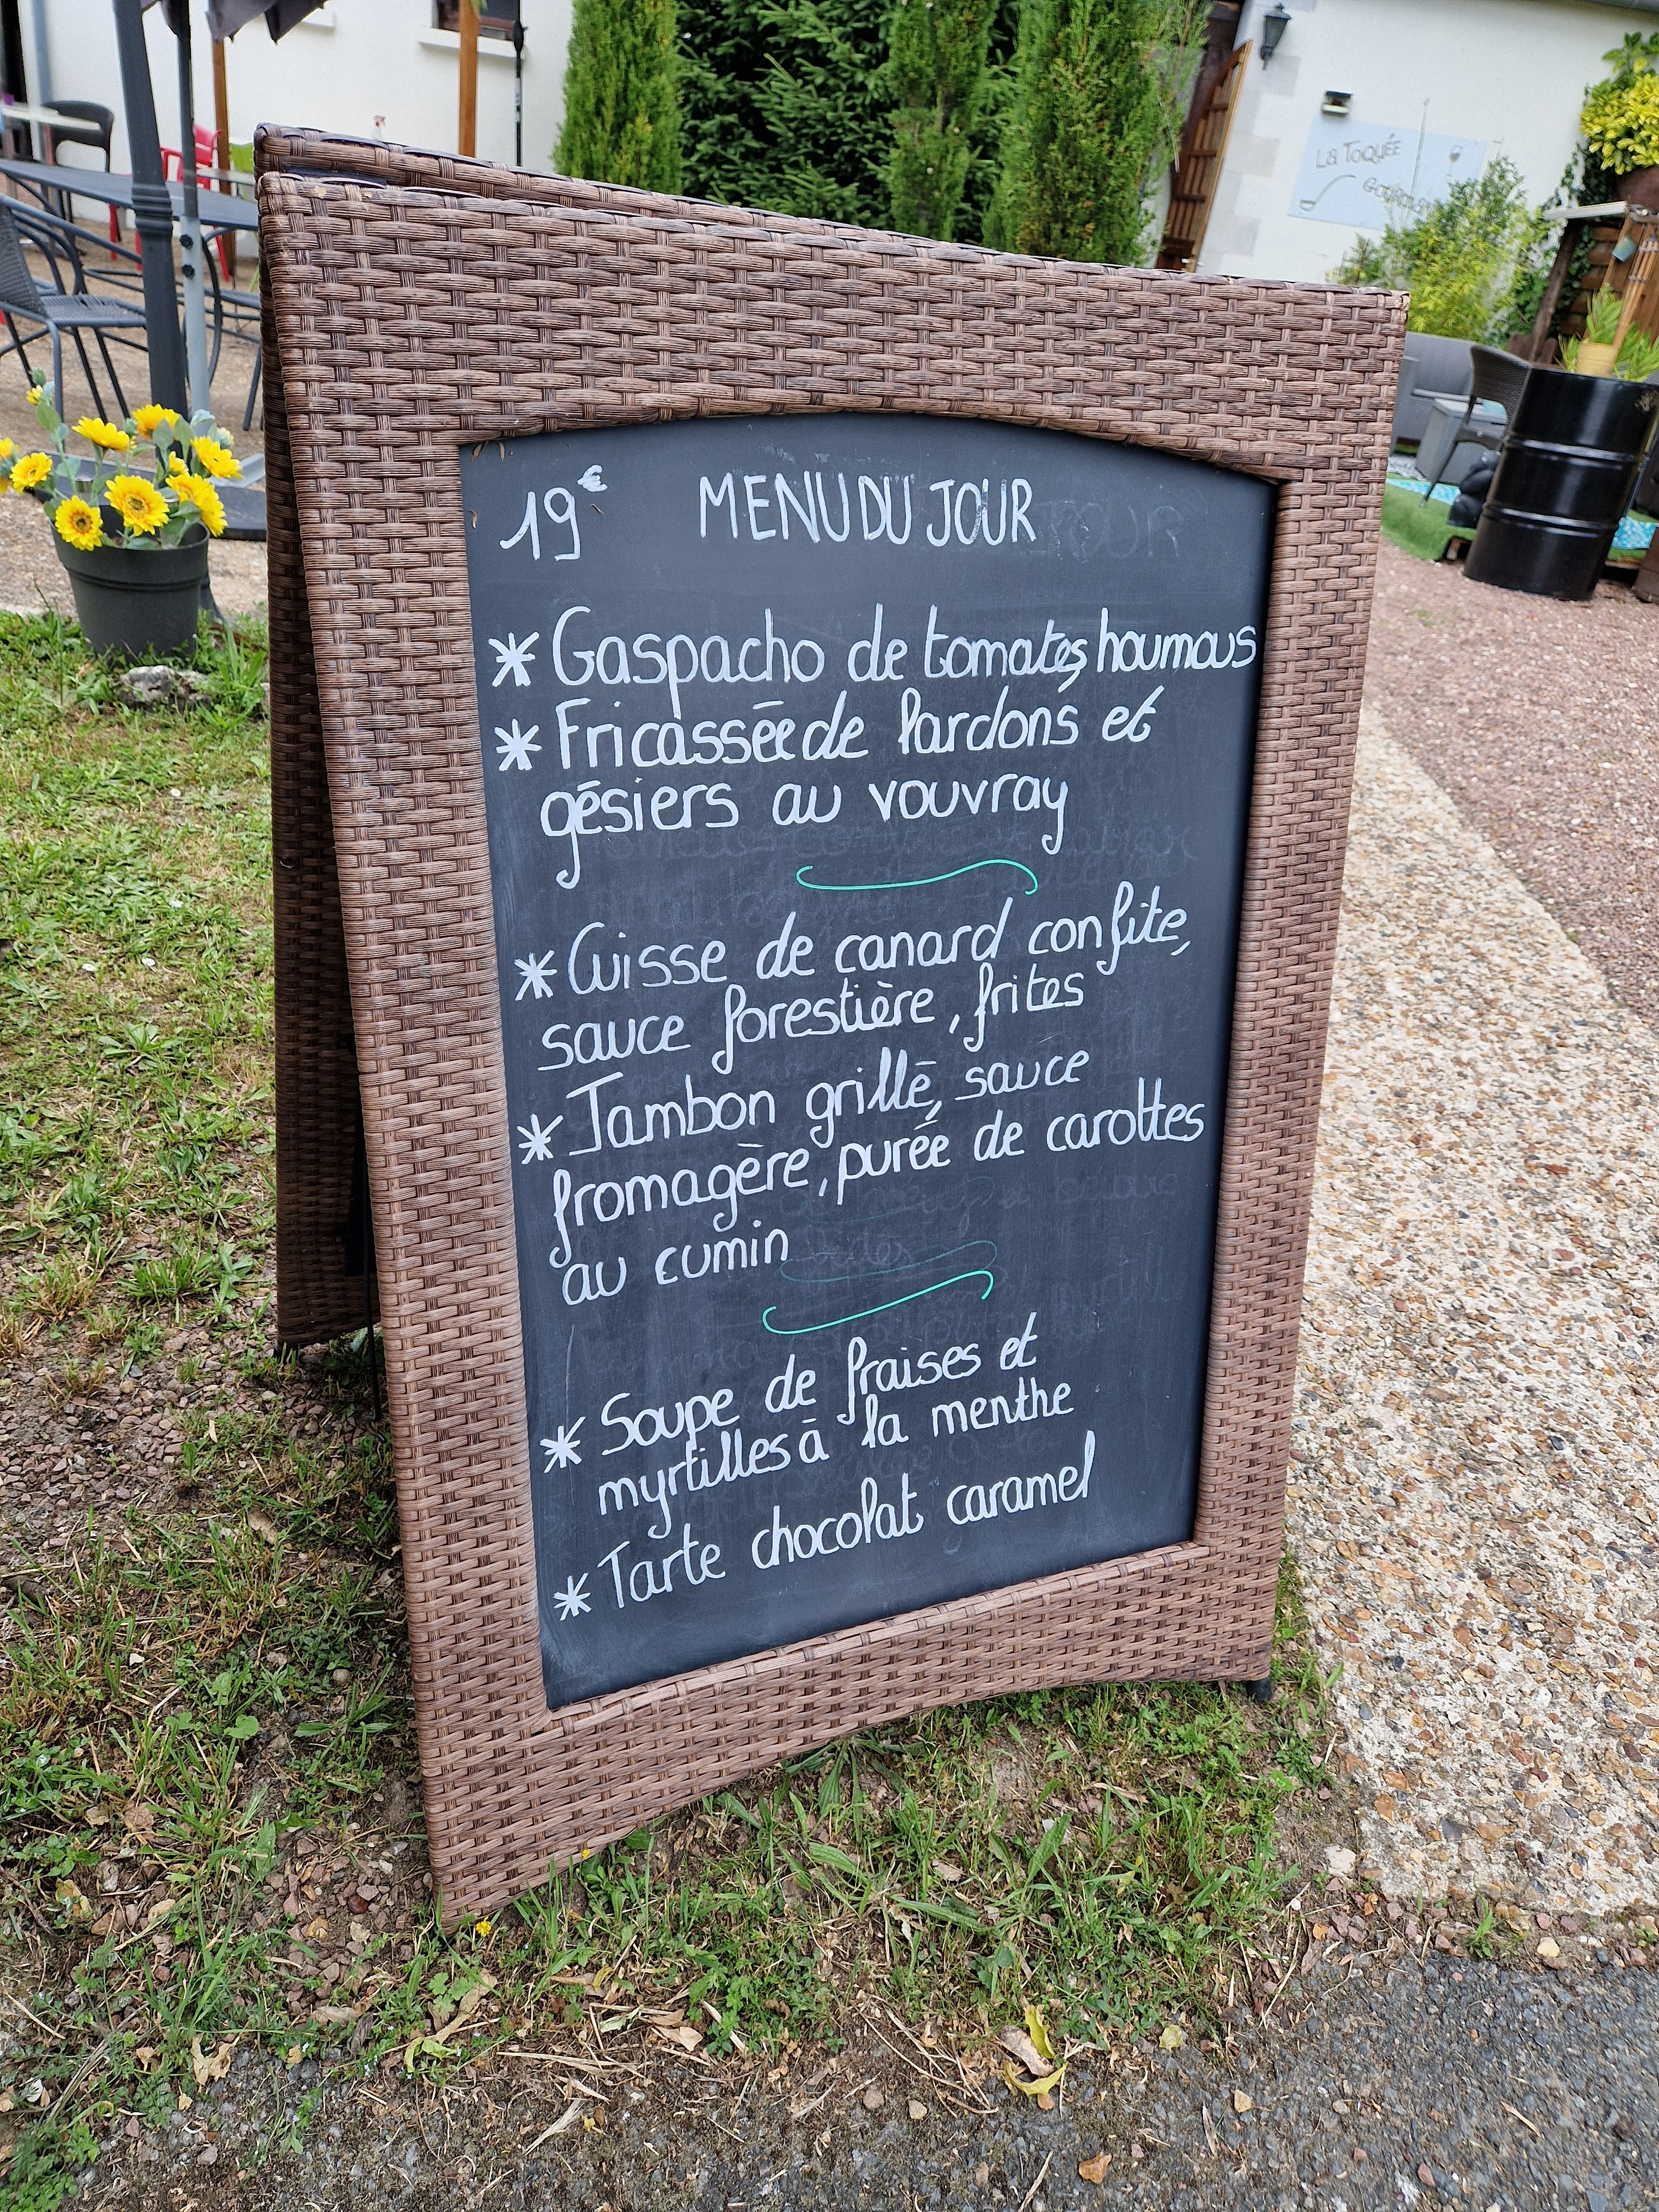 La Toquée
19€ MENU DU JOUR
* Gaspacho de tomates, houmous
* Fricassée de lardons et
gésiers au vouvray
* Cuisse de canard confite,
sauce forestière, frites
* Jambon grillé, sauce
fromagère, purée de carottes
au cumin
* Soupe de fraises et
myrtilles à la menthe
* Tarte chocolat caramel